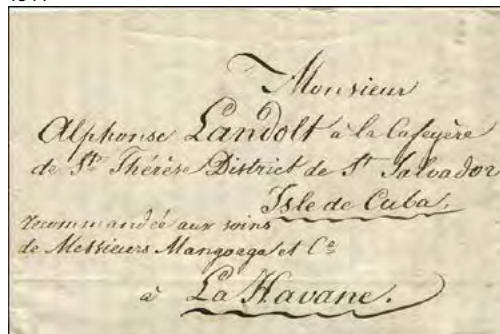 Monsieur
Alphonse Landolt à la Cafeyère
de St. Thérèse District de St Salvador
Isle de Cuba.
recommandée aux soins
de Messieurs Mangoega et Ce
à La Havane.